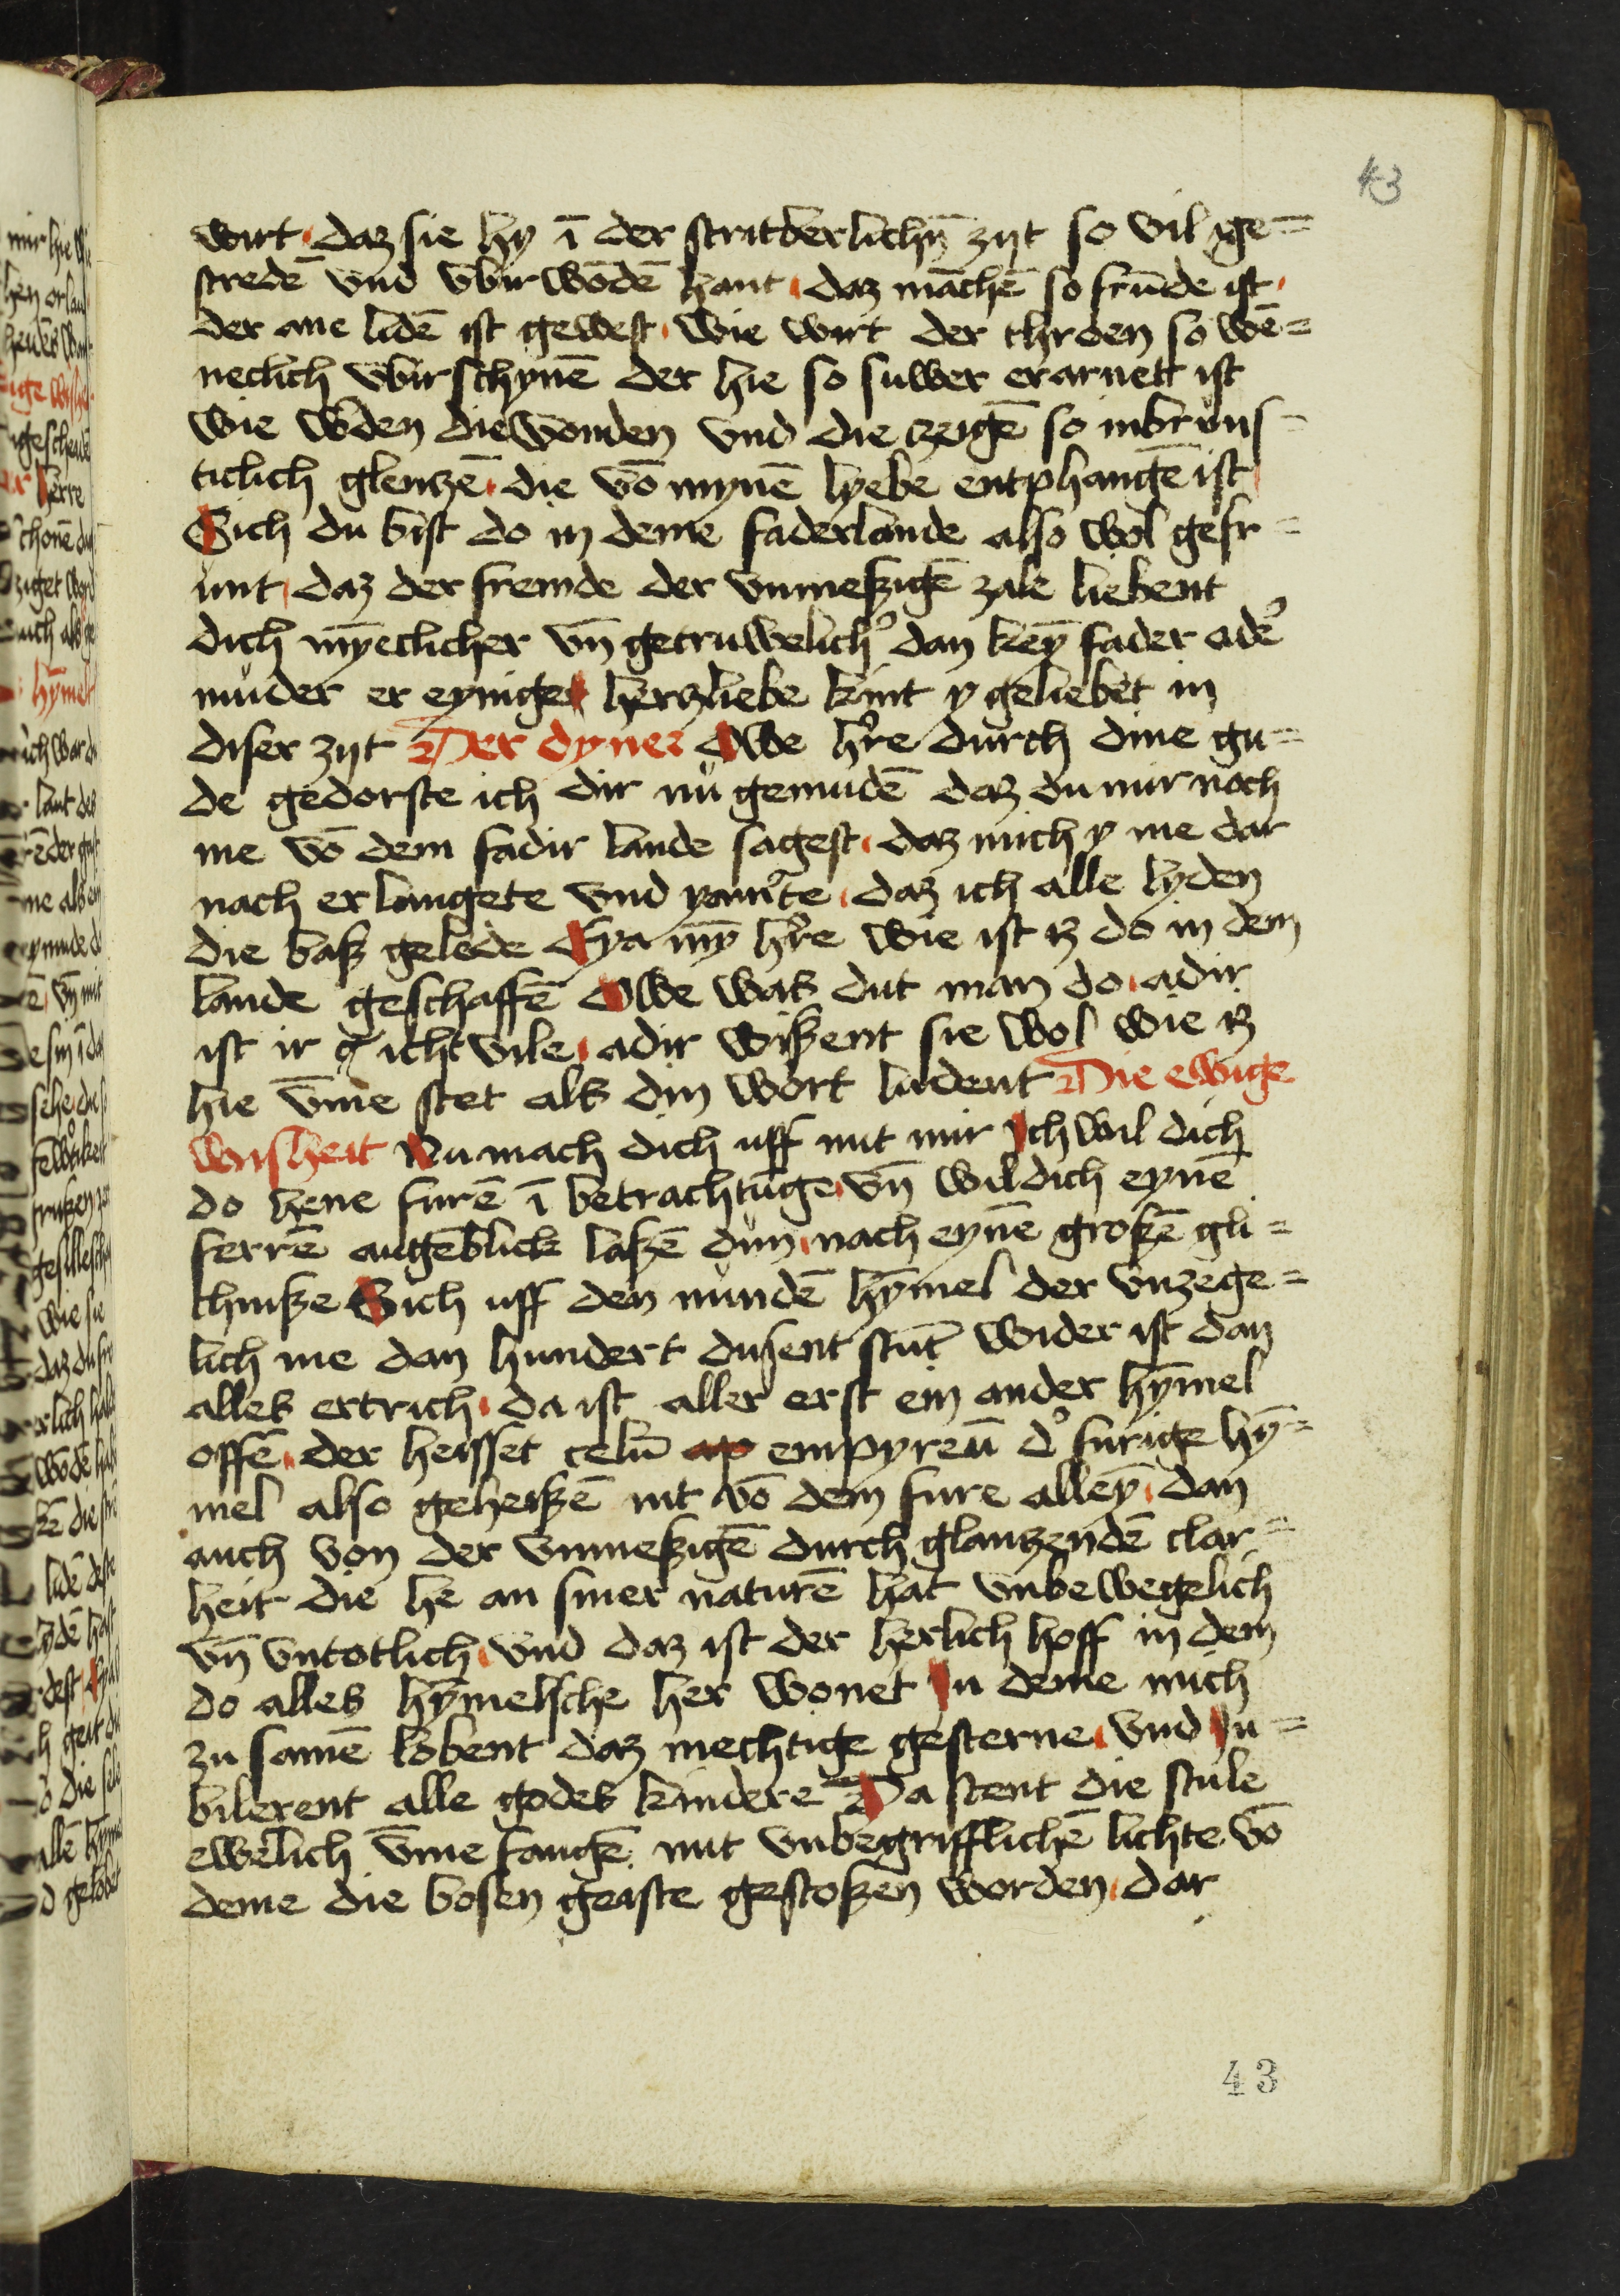 43
wirt daz sie hy ī der stritberlichn̄ zijt so vil ge=
stredē vnd vbir wōdē hant daz māchē so frūde ist
der ane lidē ist gewest wie wirt der throen so wē=
neclich vbir schynē der hie so suwer erarnett ist
wie wˀden die wonden vnd die zeigē so inbruns=
ticlich glenzē die vō mynē lyebe entphangē ist
Sich du bist do in deme faderlande also wol gefr=
unt daz der fremde der vnmeßigē zale liebent
dich mȳeclicher vn̄ getruwelichˀ dan keȳ fader adeˀ
muder er eynige herzliebe kint y geliebet in
diser zijt Der dyner Owe hˀre durch dine gu=
de gedorste ich dir nů gemudē daz du mir noch
me vō dem fadir lande sagest daz mich y me dar
nach erlangete vnd yamˀte daz ich alle lyden
die baß gelede Eya mȳ hˀre wie ist iz do in dem
lande geschaffē Owe waß dut man do adir
ist ir icht vile adir wißent sie wol wie iz
hie vme stet alß din wort ludent Die ewige
wisheit Nu mach dich uff mit mir Ich wil dich
do hene furē ī betrachtūge vn̄ wil dich eynē
ferrē augēblick laßē dun nach eynē großē gli=
chniße Sich uff den nůndē hȳmel der vnzege=
lich me dan hundert dusent stūt wider ist dan
alleß ertrich da ist aller erst ein ander hȳmel
offē der heisset celū ap empyreū dˀ furige hȳ=
mel also geheißē nit vō dem fure alleȳ dan
auch von der vnmeßigē durch glanzendē clar=
heit die he an siner naturē hat vnbewegelich
vn̄ vntotlich vnd daz ist der herlich hoff in dem
do alleß hȳmelsche her wonet In deme mich
zu samē lobent daz mechtige gesterne vnd Iu=
bilerent alle godeß kindere Da stent die stule
ewelich vme fangē mit vnbegrifflichē lichte vō
deme die bosen geiste gestoßen worden dar
43